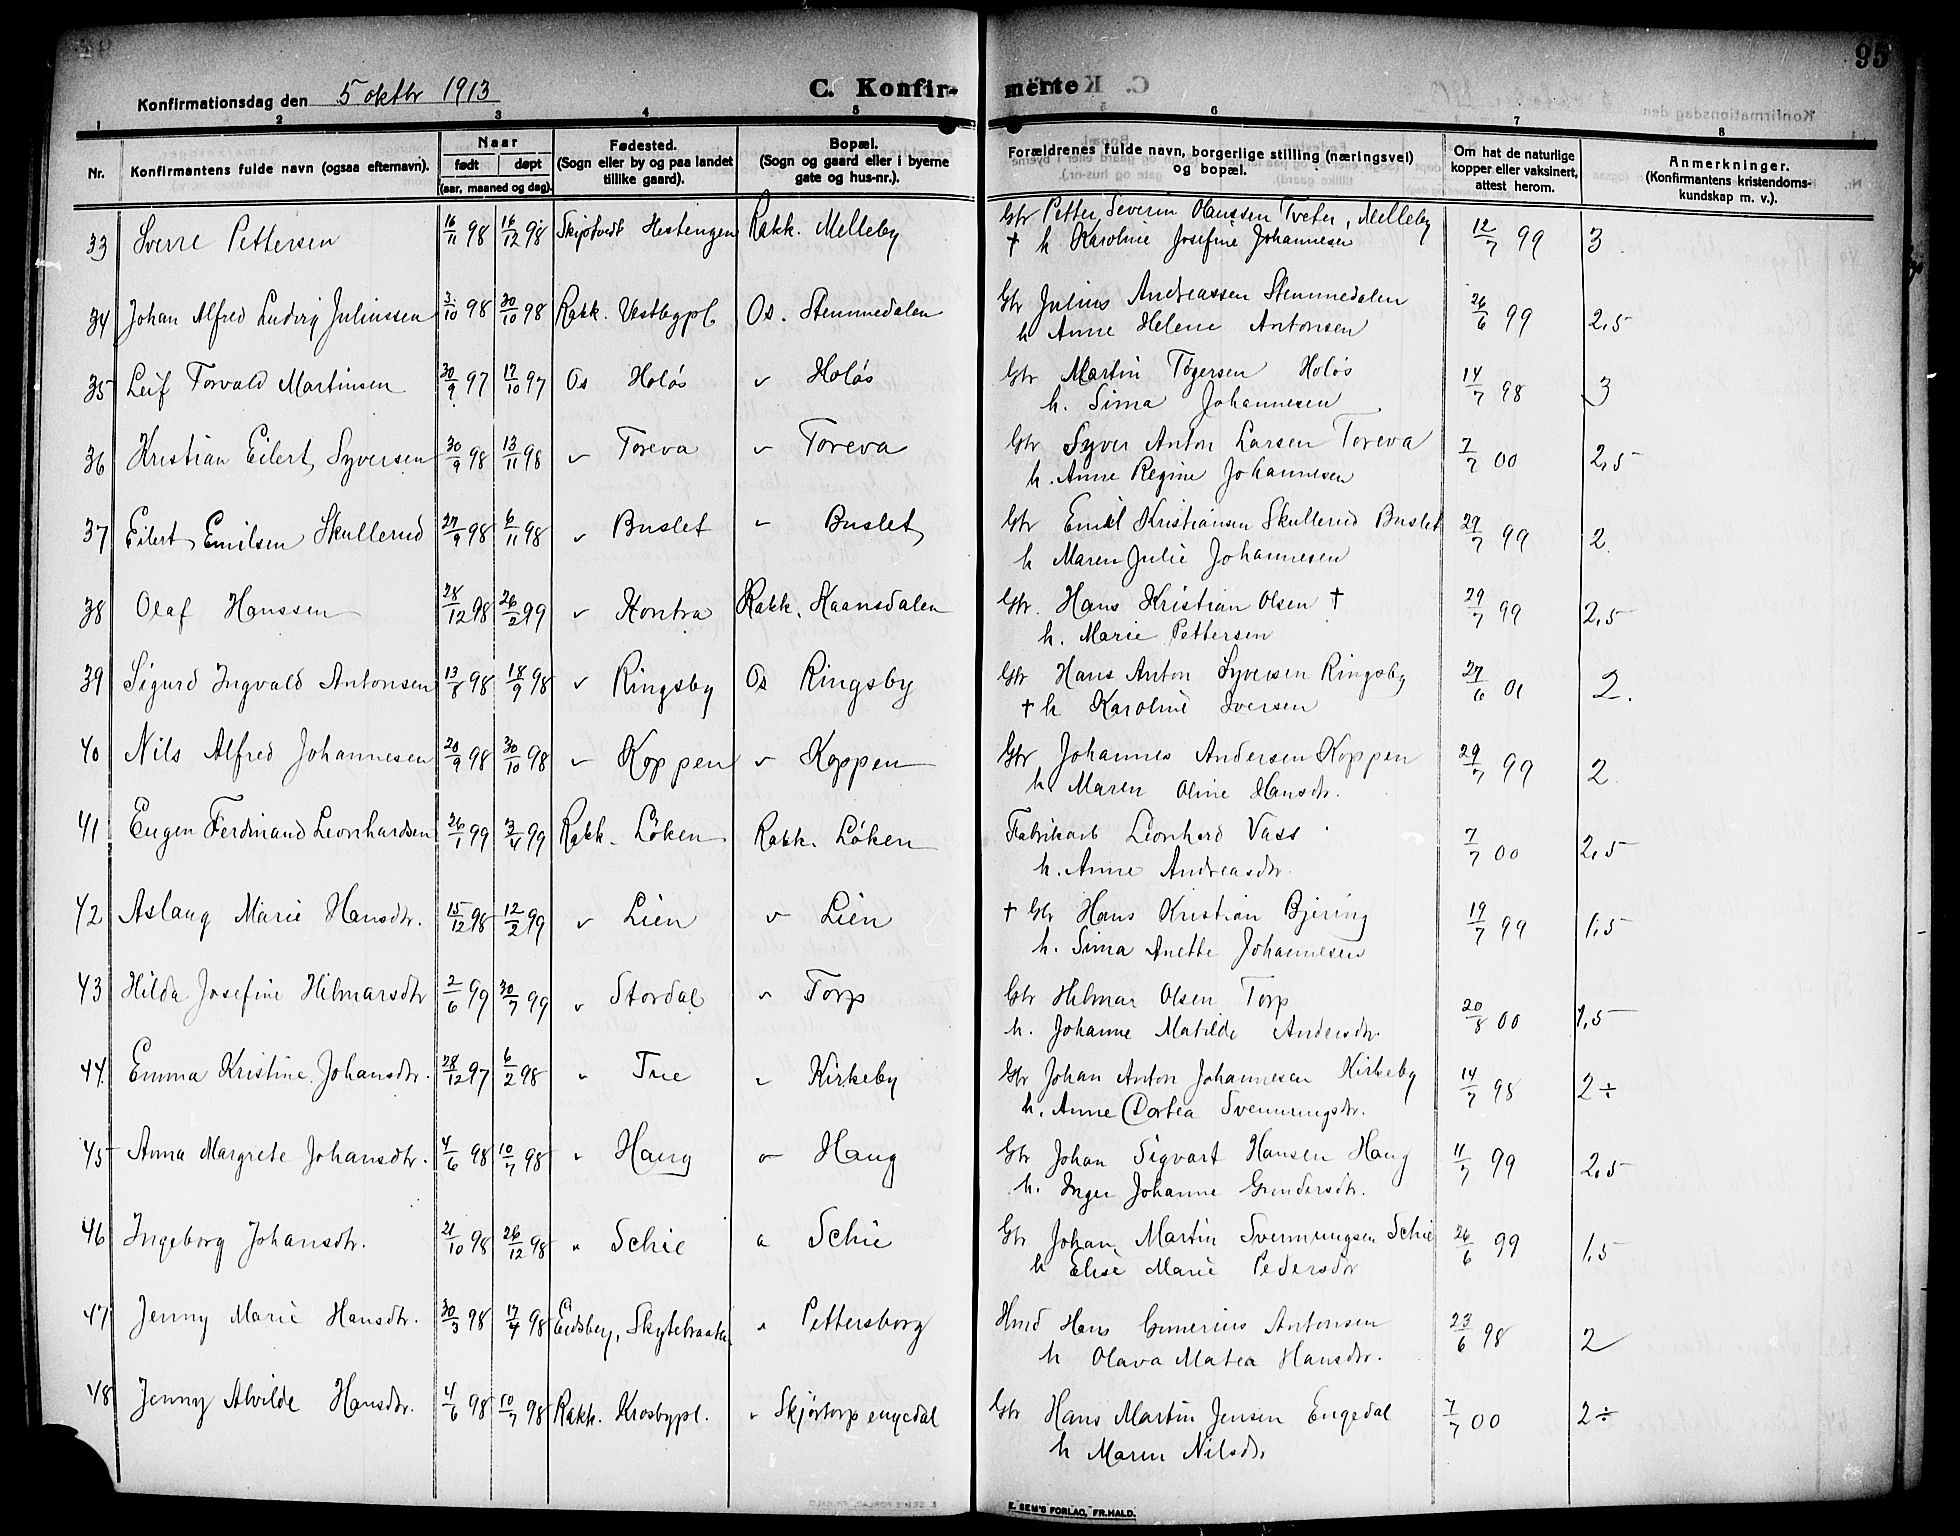 95
Konfirmationsdag den 5 oktbr 1913
C. Konfirmerte
1 2 3 4 5 6 7 8
Nr. Konfirmantens fulde navn (ogsaa efternavn). Naar født døpt (aar, maaned og dag). Fødested. (Sogn eller by og paa landet tillike gaard). Bopæl. (Sogn og gaard eller i byerne gate og hus-nr.). Forældrenes fulde navn, borgerlige stilling (næringsvei) og bopæl. Om hat de naturlige kopper eller vaksinert, attest herom. Anmerkninger. (Konfirmantens kristendomskundskap m. v.).
33 Sverre Pettersen 16/11 98 16/12 98 Skjøtvedt Hestengen Rakk. Melleby Gbr Petter Severin Olaussen Tveter, Melleby 12/7 99 3
† h Karoline Josefine Johannesen
34 Johan Alfred Ludvig Juliussen 3/10 98 30/10 98 Rakk. Vestbypl. Os. Stemmedalen Gbr Julius Andreassen Stemmedalen 26/6 99 2,5
h Anne Helene Antonsen
35 Leif Torvald Martinsen 30/9 97 17/10 97 Os Holøs " Holøs Gbr Martin Tøgersen Holøs 14/7 98 3
h. Sima Johannesen
36 Kristian Eilert Syversen 30/9 98 13/11 98 " Toreva " Toreva Gbr Syver Anton Larsen Toreva 7/7 00 2,5
h. Anne Regine Johannesen
37 Eilert Emilsen Skullerud 27/9 98 6/11 98 " Buslet " Buslet Gbr Emil Kristiansen Skullerud Buslet 29/7 99 2
h Maren Julie Johannesen
38 Olaf Hanssen 28/12 98 26/2 99 " Kontra Rakk. Kaansdalen Gbr. Hans Kristian Olsen † 29/7 99 2,5
h. Marie Pettersen
39 Sigurd Ingvald Antonsen 13/8 98 18/9 98 " Ringsby Os Ringsby Gbr Hans Anton Syversen Ringsby 27/6 01 2.
† h Karoline Iversen
40 Nils Alfred Johannesen 20/9 98 30/10 98 " Koppen " Koppen Gbr Johannes Andersen Koppen 29/7 99 2
h Maren Oline Hansdtr.
41 Eugen Ferdinand Leonhardsen 26/1 99 3/4 99 Rakk. Løken Rakk. Løken Fabrikarb Leonhard Vass 7/7 00 2,5
h. Anne Andreasdtr.
42 Aslaug Marie Hansdtr. 15/12 98 12/2 99 " Lien " Lien † Gbr Hans Kristian Bjering 19/7 99 1,5
h. Sima Anette Johannesen
43 Hilda Josefine Hilmarsdtr 2/6 99 30/7 99 " Stordal " Torp Gbr Hilmar Olsen Torp 20/8 00 1,5
h. Johanne Matilde Andersdtr.
44 Emma Kristine Johansdtr. 28/12 97 6/2 98 " Tue " Kirkeby Gbr Johan Anton Johannesen Kirkeby 14/7 98 2÷
h. Anne Dortea Svenningsdtr.
45 Anna Margrete Johansdtr. 4/6 98 10/7 98 " Haug " Haug Gbr Johan Sigvart Hansen Haug 11/7 99 2,5
h. Inger Johanne Gundersdtr.
46 Ingeborg Johansdtr. 21/10 98 26/12 98 " Schie " Schie Gbr Johan Martin Svenningsen Schie 26/6 99 1,5
h Elise Marie Pedersdtr
47 Jenny Marie Hansdtr. 30/3 98 17/4 98 Eidsberg, " Pettersborg Hmd Hans Gunerius Antonsen 23/6 98 2
h Olava Matea Hansdtr.
48 Jenny Alvilde Hansdtr. 4/6 98 10/7 98 Rakk. Krosbypl. " Skjørtorp engedal Gbr Hans Martin Jensen Engedal 7/7 00 2÷
h Maren Nilsdtr
E. SEM'S FORLAG, FR.HALD.